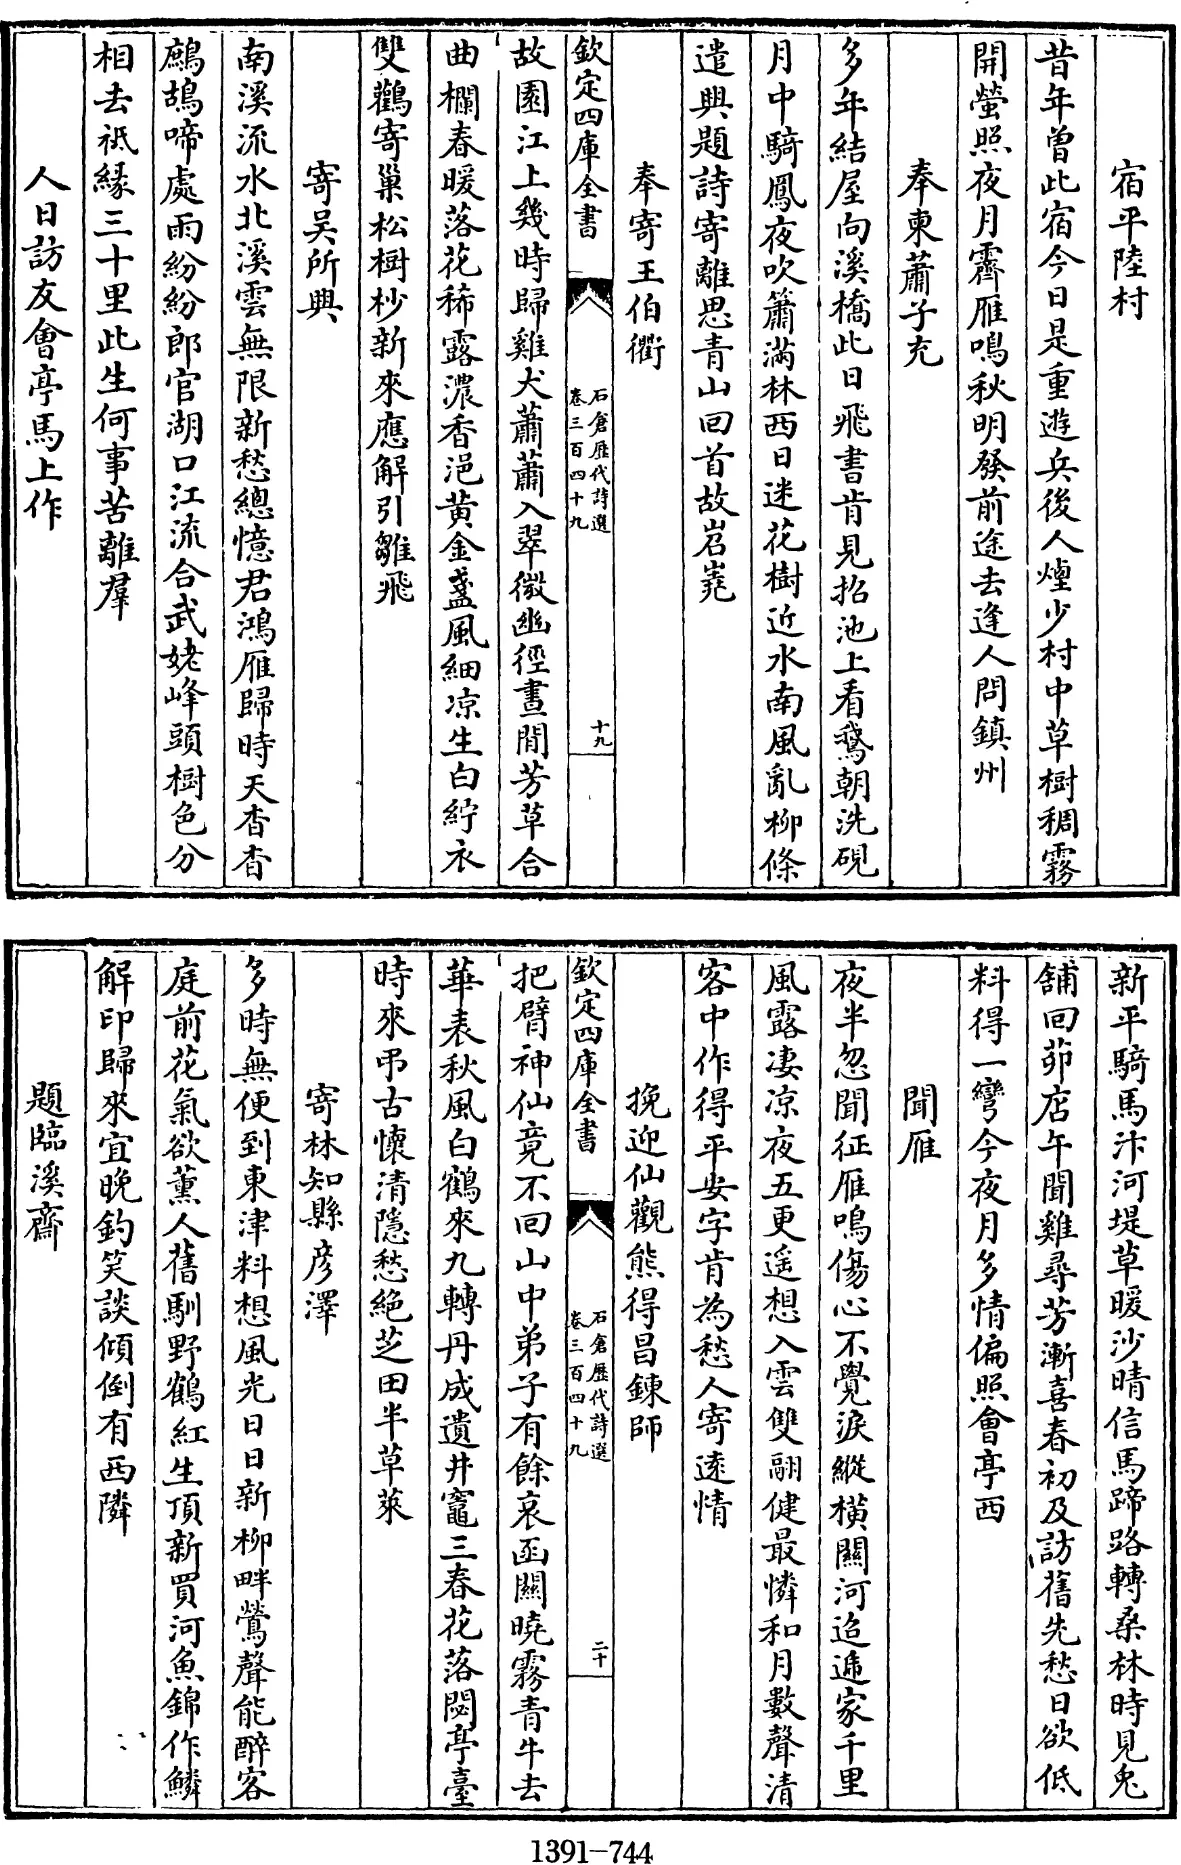 宿平陸村
昔年曾此宿今日是重遊兵後人煙少村中草樹稠霧
開螢照夜月霽雁鳴秋明發前途去逢人問鎮州
奉柬蕭子充
多年結屋向溪橋此日飛書肯見招池上看鵞朝洗硯
月中騎鳳夜吹簫滿林西日迷花樹近水南風亂柳條
遣興題詩寄離思青山回首故岧嶤
奉寄王伯衢
欽定四庫全書
石倉歷代詩選
卷三百四十九
十九
故園江上幾時歸雞犬蕭蕭入翠微幽徑晝閒芳草合
曲欄春暖落花稀露濃香浥黄金盞風細凉生白紵衣
雙鸛寄巢松樹杪新來應解引雛飛
寄吴所興
南溪流水北溪雲無限新愁總憶君鴻雁歸時天杳杳
鷓鴣啼處雨紛紛郎官湖口江流合武姥峰頭樹色分
相去祗縁三十里此生何事苦離羣
人日訪友會亭馬上作
新平騎馬汴河堤草暖沙晴信馬蹄路轉桑林時見兎
舖回茆店午聞雞尋芳漸喜春初及訪舊先愁日欲低
料得一彎今夜月多情偏照會亭西
聞雁
夜半忽聞征雁鳴傷心不覺淚縱横關河迢遞家千里
風露凄凉夜五更遥想入雲雙翮健最憐和月數聲清
客中作得平安字肯為愁人寄逺情
挽迎仙觀熊得昌鍊師
欽定四庫全書
石倉歷代詩選
卷三百四十九
二十
把臂神仙竟不回山中弟子有餘哀函關曉霧青牛去
華表秋風白鶴來九轉丹成遺井竈三春花落閟亭臺
時來弔古懷清隱愁絶芝田半草萊
寄林知縣彦澤
多時無便到東津料想風光日日新柳畔鶯聲能醉客
庭前花氣欲薰人舊馴野鶴紅生頂新買河魚錦作鱗
解印歸來宜晚釣笑談傾倒有西隣
題臨溪齋
1391-744